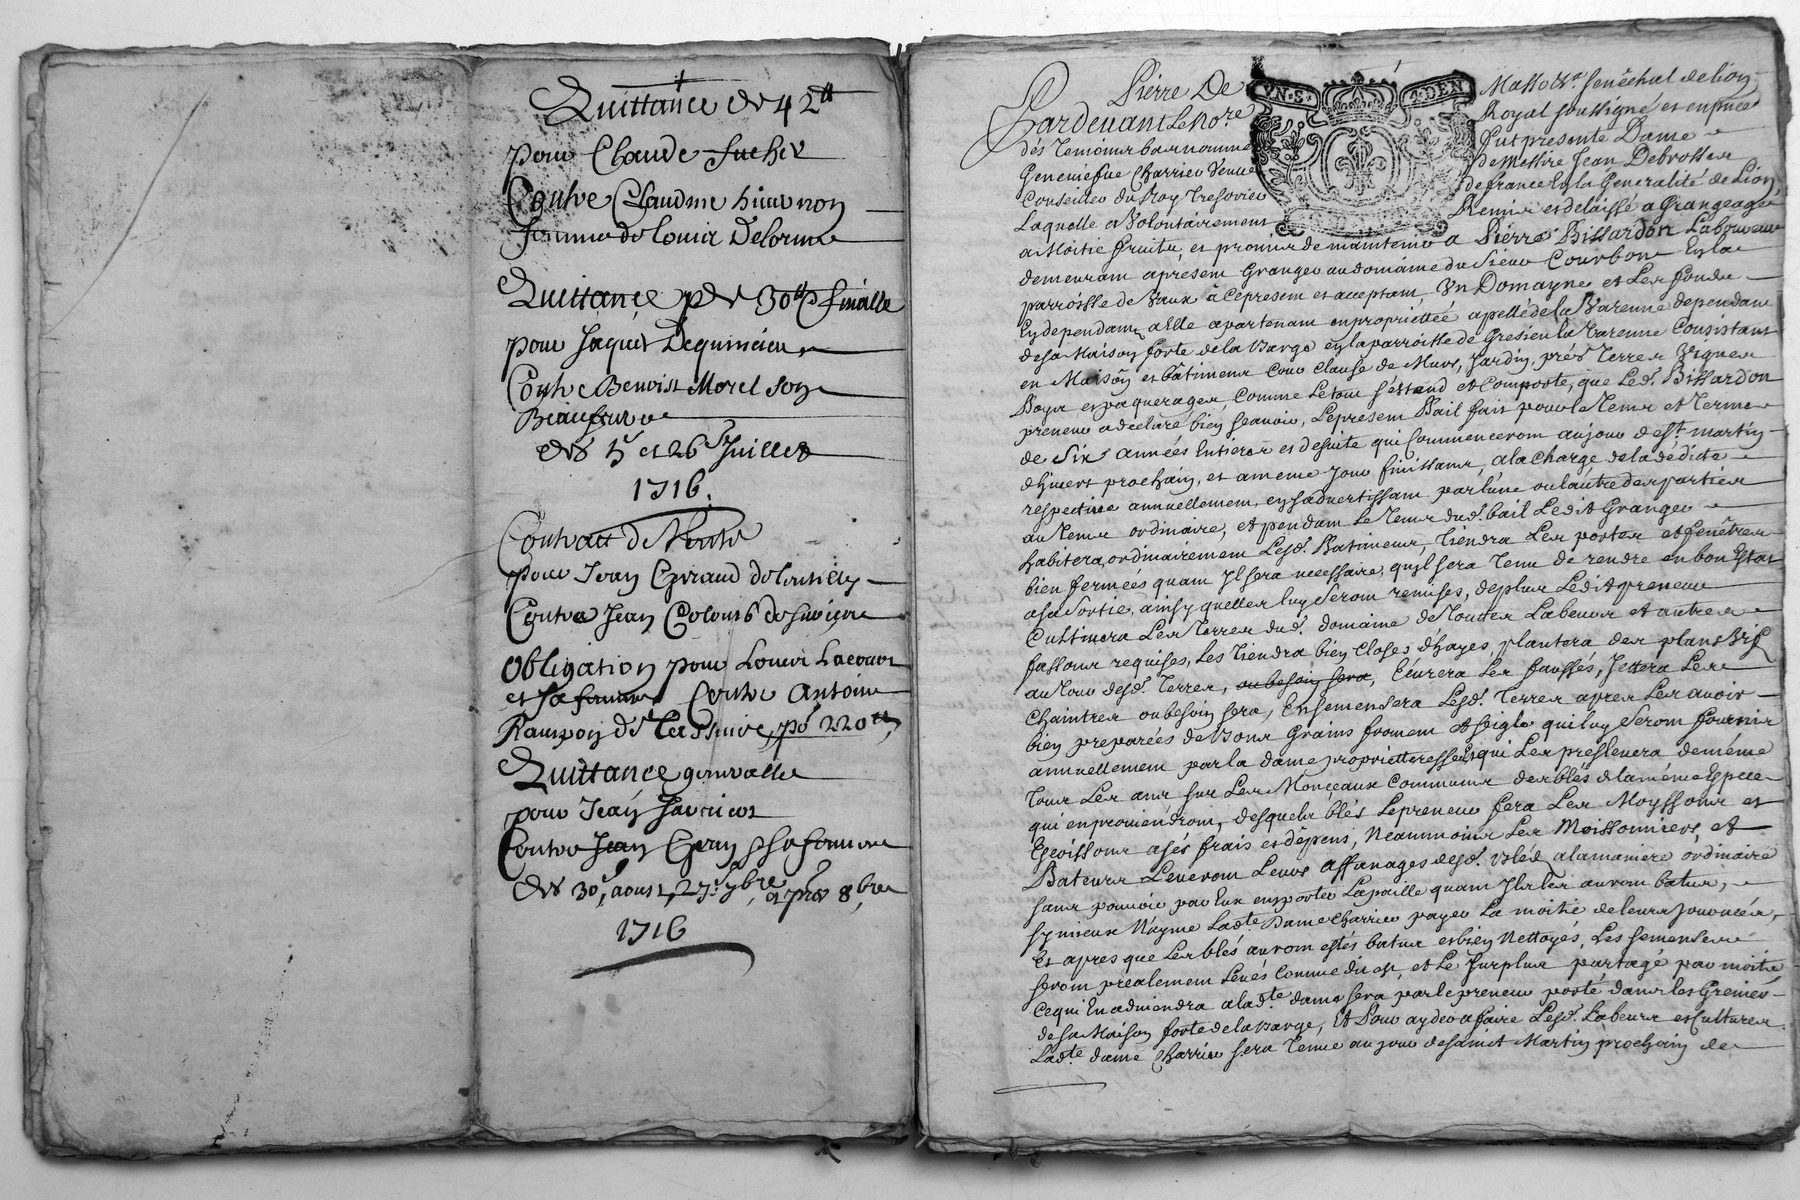 Quittance de 42ᵗᵗ
pour Claude
Contre Claudine
femme de Louis Delorme
Quittance de 30ᵗᵗ finalle
pour Jaques Dequincieu
Contre Benoist Morel son
Beaufrere
des 5 et 26ᵉ Juillet
1716.
Contract de Vente
pour Jean Giraud de
Contre Jean Colomb de
Obligation pour Louis Lacour
et sa femme Contre Antoine
de po 220ᵗᵗ
Quittance generalle
pour Jean
Contre Jean & sa femme
des 30ᵉ aoust, 27ᵉ 7bre, et pʳ 8bre
1716
VN·S· 4·DEN
Pierre De Masso Sr Senéchal de Lion,
Pardevant Le Noʳᵉ Royal soussigné et en presence
dés Temoins bas nommés fut presente Dame
Geneniefue Charrier Veuue de Messire Jean Debrosses
Conseiller du Roy Tresorier de france En la Generalité de Lion,
Laquelle a Volontairement Remis et delaissé a Grangeage
a Moitié fruits, et promis de maintenir a Pierre Bissardon Laboureur
demeurant apresent Granger au domaine du Sieur Courbon En la
parroisse de Vaux à ce present et acceptant, Vn Domayne et Les fonds
En dependants a Elle apartenant en propriettée apellé de la Varenne dependant
de sa Maison forte de la Barge en la parroisse de Gresieu la Varenne Consistant
en Maison et bâtiments Cour Clause de Murs, Jardin, prés Terres Vignes
Boys et paquerages Comme Le tout s'estend et Comporte, que Led. Bissardon
preneur a declaré bien sçauoir, Le present Bail fait pour le Tems et Terme
de Six années Entieres et de suite qui Commenceront au jour de sᵗ martin
d'hiuert prochain, et a meme jour finissant, a la Charge de la dédicte
respectiue annuellement en s'aduertissant par l'une ou l'autre des parties
au Tems ordinaire, et pendant Le Tems dud. bail Ledit Granger
habitera ordinairement Lesd. Batimens, Tiendra Les portes et fenêtres
bien fermées quant Il sera necessaire, qu'il sera Tenu de rendre en bon Estat
a sa Sortie, ainsy quelles luy Seront remises, de plus Ledit preneur
Cultiuera Les Terres dud. domaine de Toutes Labeurs et autres
fassons requises, Les Tiendra bien Closes d'hayes, plantera des plans Vifs
au Tour desd. Terres, ou besoin sera, Eéurera Les fausses, Jettera Les
Chaintres ou besoin sera, Ensemensera Lesd. Terres apres Les auoir
bien preparées de bons Grains froment et seigle qui luy Seront fournis
annuellement par la dame proprietteresse Et qui Les presleuera de méme
Tous Les ans sur Les Monçeaux Communs des blés de la méme Espece
qui en prouiendront, desquels blés Le preneur fera Les Moyssons et
Escoissons a sés frais et dépens, Neanmoins Les Moissonniers, et
Bateurs Leueront Leurs affanages desd. bléd a la maniere ordinaire
sans pouuoir par Eux emporter La paille quant Ils Les auront batus,
sy mieux N'ayme Ladᵗᵉ Dame Charrier payer La moitié de leurs journées,
Et apres que Les blés auront estés batus et bien Nettoyés, Les semenses
seront prealement Leués Comme dit est, et Le Surplus partagé par moitié
Ce qui En aduiendra a ladᵗᵉ dame sera par le preneur porté dans les Greniers
de sa Maison forte de la Barge, Et Pour ayder a faire Lesd. Labeurs et Cultures
Ladᵗᵉ dame Charrier sera Tenue au jour de saint Martin prochain de